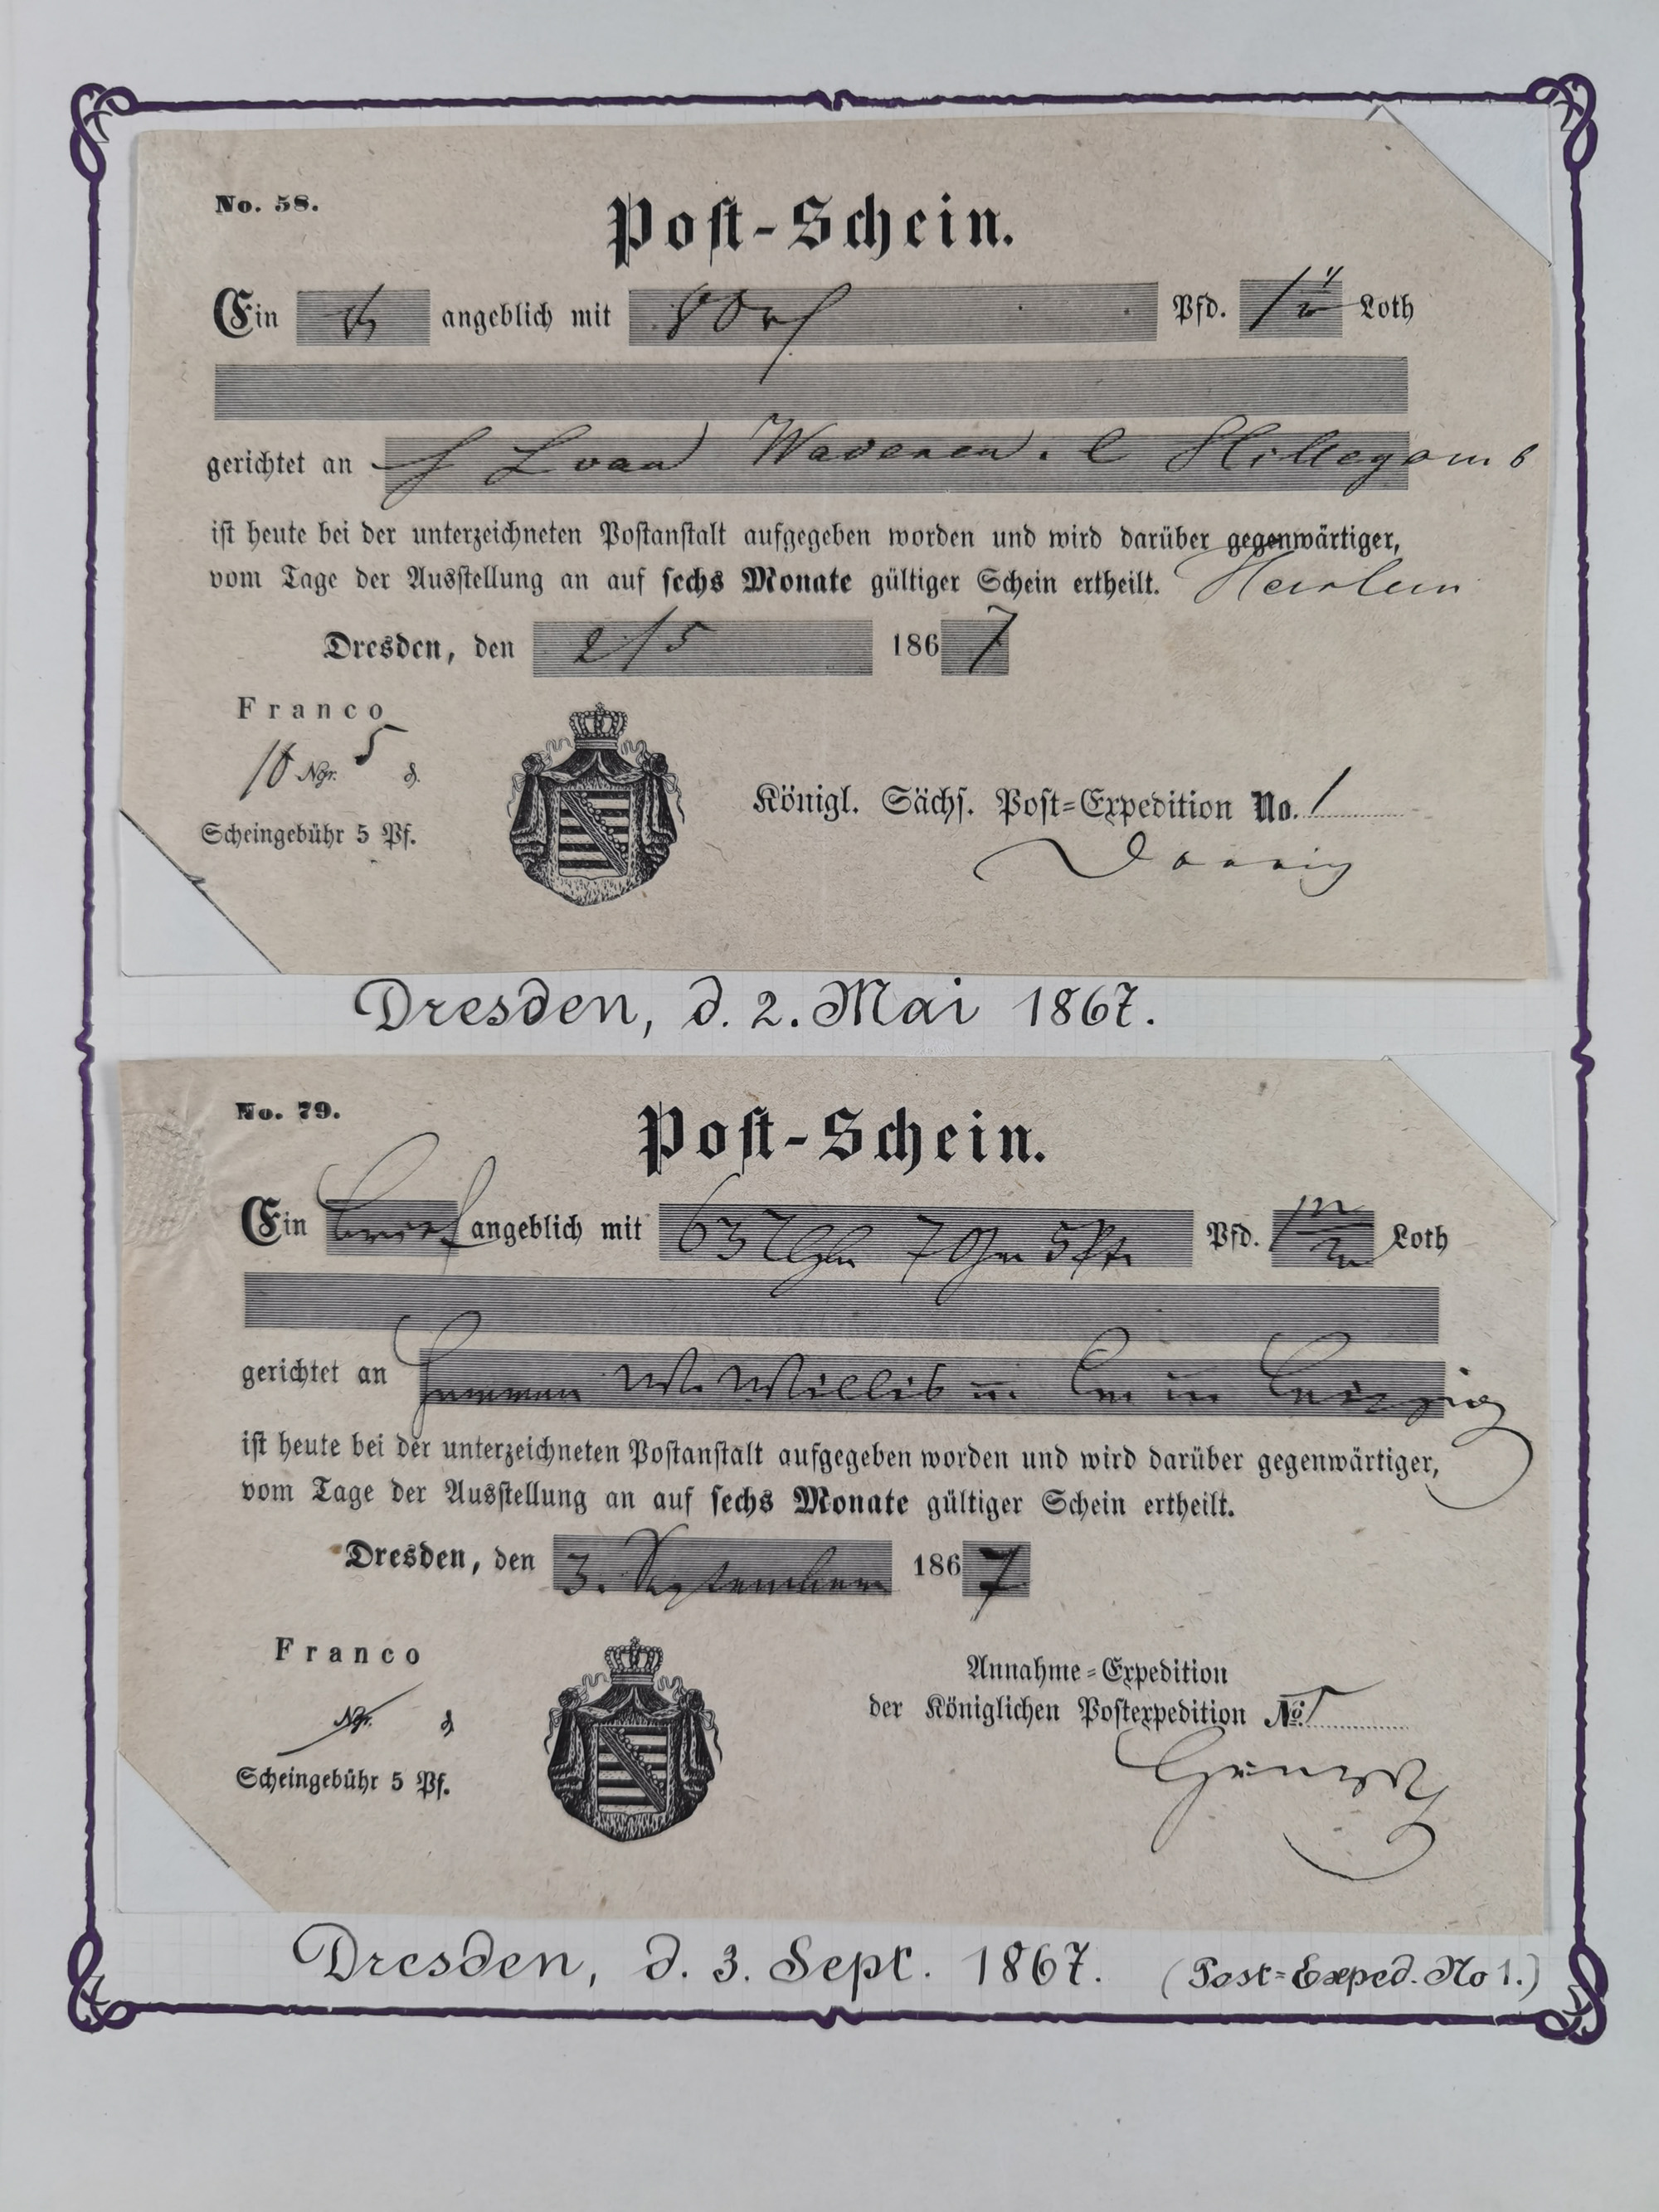 No. 58.
Post-Schein.
Ein angeblich mit Pfd. Loth
gerichtet an van Waveren. Hillegom b
ist heute bei der unterzeichneten Postanstalt aufgegeben worden und wird darüber gegenwärtiger,
vom Tage der Ausstellung an auf sechs Monate gültiger Schein ertheilt. Harlem
Dresden, den 2/5 1867
Franco
Ngr. 5 ₰.
Scheingebühr 5 Pf.
Königl. Sächs. Post=Expedition No. 1
Dresden, d. 2. Mai 1867.
No. 79.
Post-Schein.
Ein Brief angeblich mit 63 7 5 Pfd. Loth
gerichtet an Herren in Leipzig
ist heute bei der unterzeichneten Postanstalt aufgegeben worden und wird darüber gegenwärtiger,
vom Tage der Ausstellung an auf sechs Monate gültiger Schein ertheilt.
Dresden, den 3. September 1867
Franco
Ngr. ₰
Scheingebühr 5 Pf.
Annahme=Expedition
der Königlichen Postexpedition No. 1
Dresden, d. 3. Sept. 1867. (Post=Exped. No 1.)